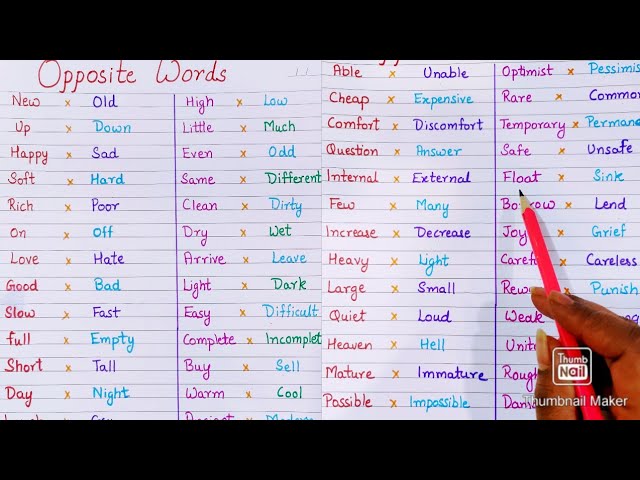 Opposite Words
New x Old
Up x Down
Happy x Sad
Soft x Hard
Rich x Poor
On x Off
Love x Hate
Good x Bad
Slow x Fast
full x Empty
Short x Tall
Day x Night
High x Low
Little x Much
Even x Odd
Same x Different
Clean x Dirty
Dry x Wet
Arrive x Leave
Light x Dark
Easy x Difficult
Complete x Incomplet
Buy x Sell
Warm x Cool
Able x Unable
Cheap x Expensive
Comfort x Discomfort
Question x Answer
Internal x External
Few x Many
Increase x Decrease
Heavy x Light
Large x Small
Quiet x Loud
Heaven x Hell
Mature x Immature
Possible x Impossible
Optimist x Pessimis
Rare x Common
Temporary x Permane
Safe x Unsafe
Float x Sink
Borrow x Lend
Joy x Grief
Caref x Careless
Rew x Punish
Weak
Unit
Rough
Dan
Thumb
Nail
Thumbnail Maker